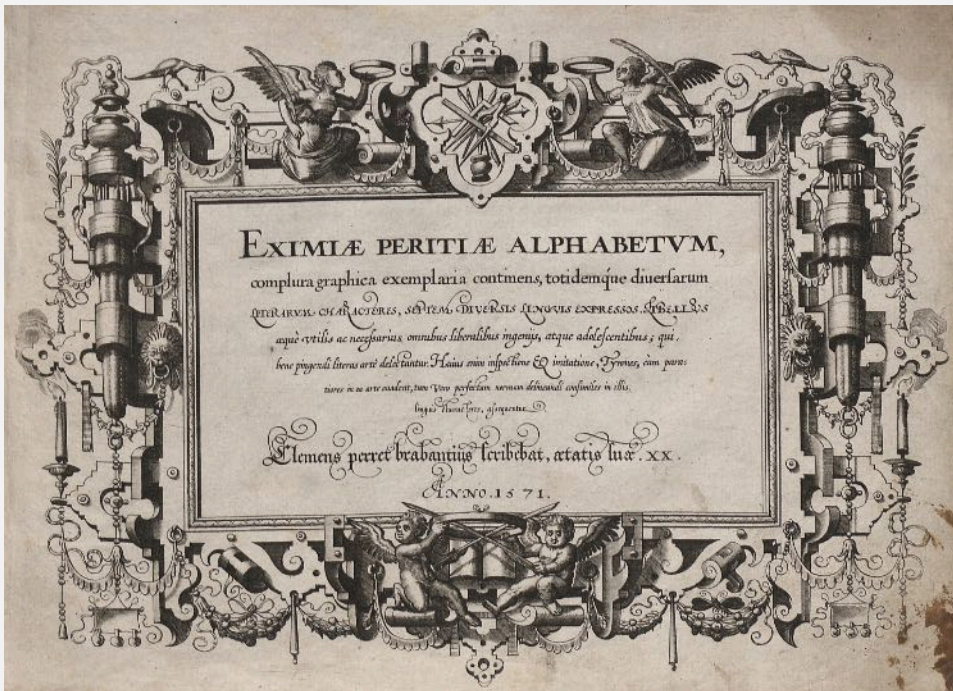 EXIMIÆ PERITIÆ ALPHABETVM,
complura graphica exemplaria continens, totidemque diversarum
LITERARVM CHARACTERES, SEPTEM DIVERSIS LINGVIS EXPRESSOS. LIBELLVS
æquè vtilis ac necessarius, omnibus liberalibus ingenijs, atque adolescentibus; qui
bene pingendi literas arte delectantur. Huius enim inspectione & imitatione, Tyrones, cùm para-
tiores in ea arte evadent, tum vero perfectam normam delineandi consimiles in illis
linguis characteres, assequentur.
Clemens perret brabantius scribebat, ætatis suæ. XX.
ANNO. 1571.